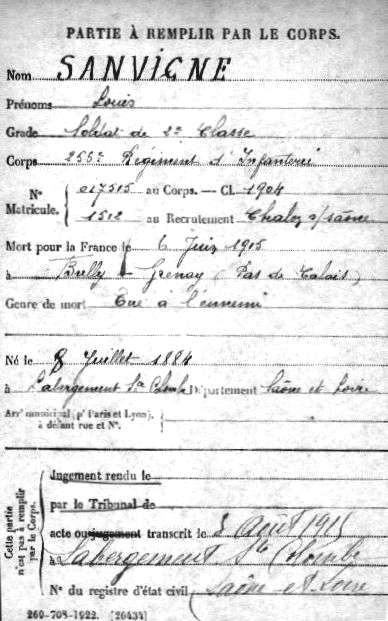 PARTIE À REMPLIR PAR LE CORPS.
Nom SANVIGNE
Prénoms Louis
Grade Soldat de 2e Classe
Corps 255e Régiment d'Infanterie
N° Matricule. { 017515 au Corps. — Cl. 1904
1512 au Recrutement Chalon s/saône
Mort pour la France le 6 Juin 1915
à Bully Grenay (Pas de Calais)
Genre de mort Tué à l'ennemi
Né le 8 Juillet 1884
à Labergement Ste Colombe Département Saône et Loire
Arrt municipal (pr Paris et Lyon),
à défaut rue et N°.
Cette partie n'est pas à remplir par le Corps.
Jugement rendu le
par le Tribunal de
acte ou jugement transcrit le 5 Août 1915
à Labergement Ste Colombe
N° du registre d'état civil (Saône et Loire
260-708-1922. [26434]